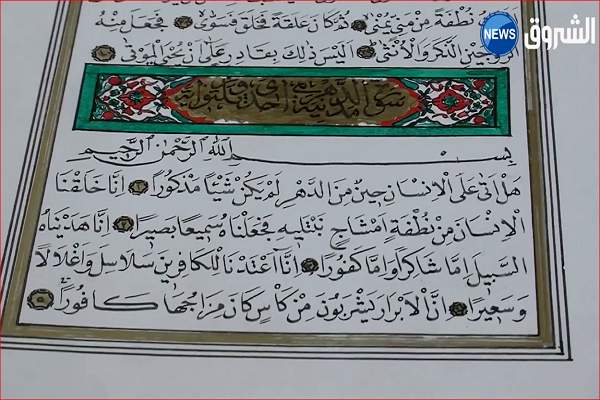 الشروق NEWS
نُطْفَةً مِنْ مَنِيٍّ يُمْنٰى ثُمَّ كَانَ عَلَقَةً فَخَلَقَ فَسَوّٰى فَجَعَلَ مِنْهُ
الزَّوْجَيْنِ الذَّكَرَ وَالْاُنْثٰى اَلَيْسَ ذٰلِكَ بِقَادِرٍ عَلٰى اَنْ يُحْيِيَ الْمَوْتٰى
سورة الدهر مدنية احدى وثلثون اية
بِسْمِ اللّٰهِ الرَّحْمٰنِ الرَّحِيمِ
هَلْ اَتٰى عَلَى الْاِنْسَانِ حِينٌ مِنَ الدَّهْرِ لَمْ يَكُنْ شَيْئًا مَذْكُورًا اِنَّا خَلَقْنَا
الْاِنْسَانَ مِنْ نُطْفَةٍ اَمْشَاجٍ نَبْتَلِيهِ فَجَعَلْنَاهُ سَمِيعًا بَصِيرًا اِنَّا هَدَيْنَاهُ
السَّبِيلَ اِمَّا شَاكِرًا وَاِمَّا كَفُورًا اِنَّا اَعْتَدْنَا لِلْكَافِرِينَ سَلَاسِلَ وَاَغْلَالًا
وَسَعِيرًا اِنَّ الْاَبْرَارَ يَشْرَبُونَ مِنْ كَأْسٍ كَانَ مِزَاجُهَا كَافُورًا